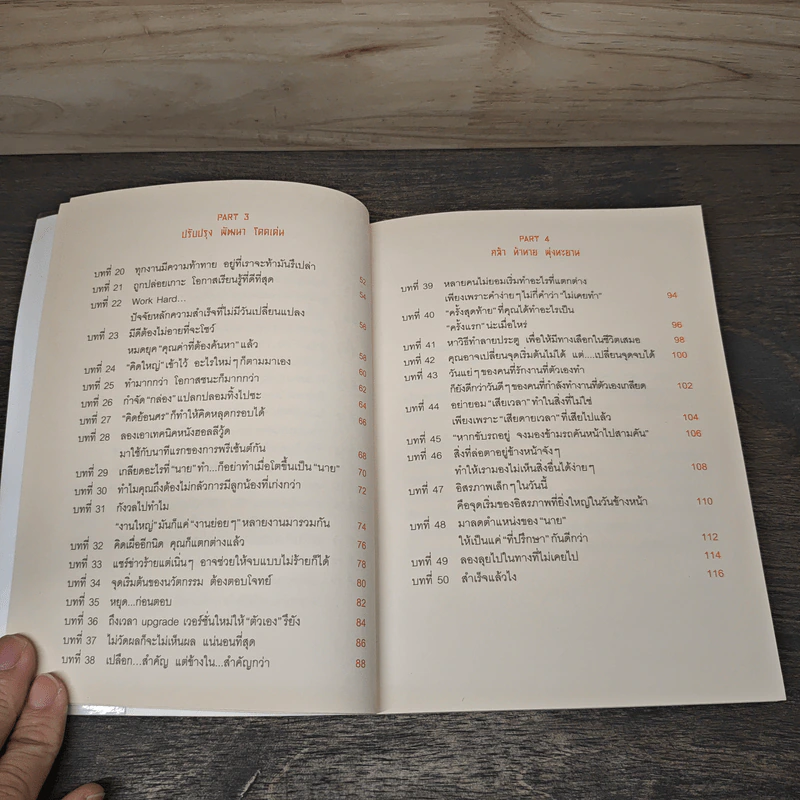 PART 3
ปรับปรุง พัฒนา โดดเด่น
บทที่ 20 ทุกงานมีความท้าทาย อยู่ที่เราจะท้ามันรึเปล่า 52
บทที่ 21 ถูกปล่อยเกาะ โอกาสเรียนรู้ที่ดีที่สุด 54
บทที่ 22 Work Hard...
ปัจจัยหลักความสำเร็จที่ไม่มีวันเปลี่ยนแปลง 56
บทที่ 23 มีดีต้องไม่อายที่จะโชว์
หมดยุค "คุณค่าที่ต้องค้นหา" แล้ว 58
บทที่ 24 "คิดใหญ่" เข้าไว้ อะไรใหม่ๆ ก็ตามมาเอง 60
บทที่ 25 ทำมากกว่า โอกาสชนะก็มากกว่า 62
บทที่ 26 กำจัด "กล่อง" แปลกปลอมทิ้งไปซะ 64
บทที่ 27 "คิดย้อนศร" ก็ทำให้คิดหลุดกรอบได้ 66
บทที่ 28 ลองเอาเทคนิคหนังฮอลลีวู้ด
มาใช้กับนาทีแรกของการพรีเซ้นต์กัน 68
บทที่ 29 เกลียดอะไรที่ "นาย" ทำ...ก็อย่าทำเมื่อโตขึ้นเป็น "นาย" 70
บทที่ 30 ทำไมคุณถึงต้องไม่กลัวการมีลูกน้องที่เก่งกว่า 72
บทที่ 31 กังวลไปทำไม
"งานใหญ่" มันก็แค่ "งานย่อยๆ" หลายงานมารวมกัน 74
บทที่ 32 คิดเผื่ออีกนิด คุณก็แตกต่างแล้ว 76
บทที่ 33 แชร์ข่าวร้ายแต่เนิ่นๆ อาจช่วยให้จบแบบไม่ร้ายก็ได้ 78
บทที่ 34 จุดเริ่มต้นของนวัตกรรม ต้องตอบโจทย์ 80
บทที่ 35 หยุด...ก่อนตอบ 82
บทที่ 36 ถึงเวลา upgrade เวอร์ชั่นใหม่ให้ "ตัวเอง" รึยัง 84
บทที่ 37 ไม่วัดผลก็จะไม่เห็นผล แน่นอนที่สุด 86
บทที่ 38 เปลือก...สำคัญ แต่ข้างใน...สำคัญกว่า 88
PART 4
กล้า ท้าทาย พุ่งทะยาน
บทที่ 39 หลายคนไม่ยอมเริ่มทำอะไรที่แตกต่าง
เพียงเพราะคำง่ายๆ ไม่กี่คำว่า "ไม่เคยทำ" 94
บทที่ 40 "ครั้งสุดท้าย" ที่คุณได้ทำอะไรเป็น
"ครั้งแรก" น่ะเมื่อไหร่ 96
บทที่ 41 หาวิธีทำลายประตู เพื่อให้มีทางเลือกในชีวิตเสมอ 98
บทที่ 42 คุณอาจเปลี่ยนจุดเริ่มต้นไม่ได้ แต่....เปลี่ยนจุดจบได้ 100
บทที่ 43 วันแย่ๆ ของคนที่รักงานที่ตัวเองทำ
ก็ยังดีกว่าวันดีๆ ของคนที่กำลังทำงานที่ตัวเองเกลียด 102
บทที่ 44 อย่ายอม "เสียเวลา" ทำในสิ่งที่ไม่ใช่
เพียงเพราะ "เสียดายเวลา" ที่เสียไปแล้ว 104
บทที่ 45 "หากขับรถอยู่ จงมองข้ามรถคันหน้าไปสามคัน" 106
บทที่ 46 สิ่งที่ล่อตาอยู่ข้างหน้าจังๆ
ทำให้เรามองไม่เห็นสิ่งอื่นได้ง่ายๆ 108
บทที่ 47 อิสรภาพเล็กๆ ในวันนี้
คือจุดเริ่มของอิสรภาพที่ยิ่งใหญ่ในวันข้างหน้า 110
บทที่ 48 มาลดตำแหน่งของ "นาย"
ให้เป็นแค่ "ที่ปรึกษา" กันดีกว่า 112
บทที่ 49 ลองลุยไปในทางที่ไม่เคยไป 114
บทที่ 50 สำเร็จแล้วไง 116